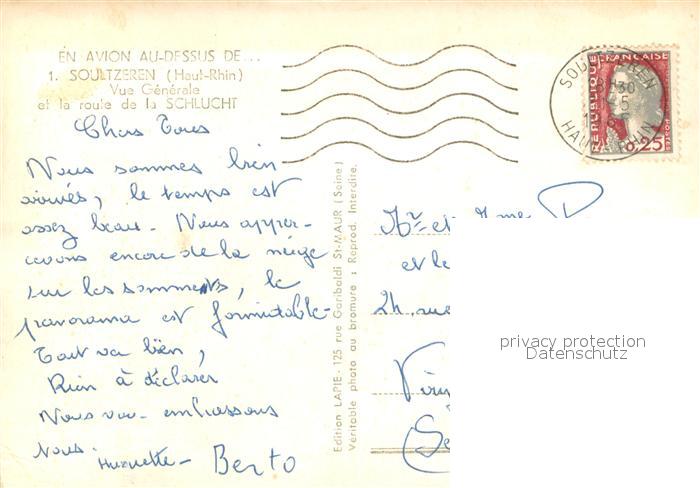 EN AVION AU-DESSUS DE...
1. SOULTZEREN (Haut-Rhin)
Vue Générale
et la route de la SCHLUCHT
Chers Tous
Nous sommes bien
arrivés, le temps est
assez beau. Nous apper-
cevons encore de la neige
sur les sommets, le
panorama est formidable.
Tout va bien,
Rien à déclarer
Nous vous embrassons
Nous Huguette - Berto
Edition LAPIE - 125 rue Garibaldi St-MAUR (Seine)
Véritable photo au bromure : Reprod. Interdite.
SOULTZEREN
HAUT RHIN
REPUBLIQUE FRANÇAISE
POSTES
0,25
Mr et Mme D
et le
24, rue
privacy protection
Datenschutz